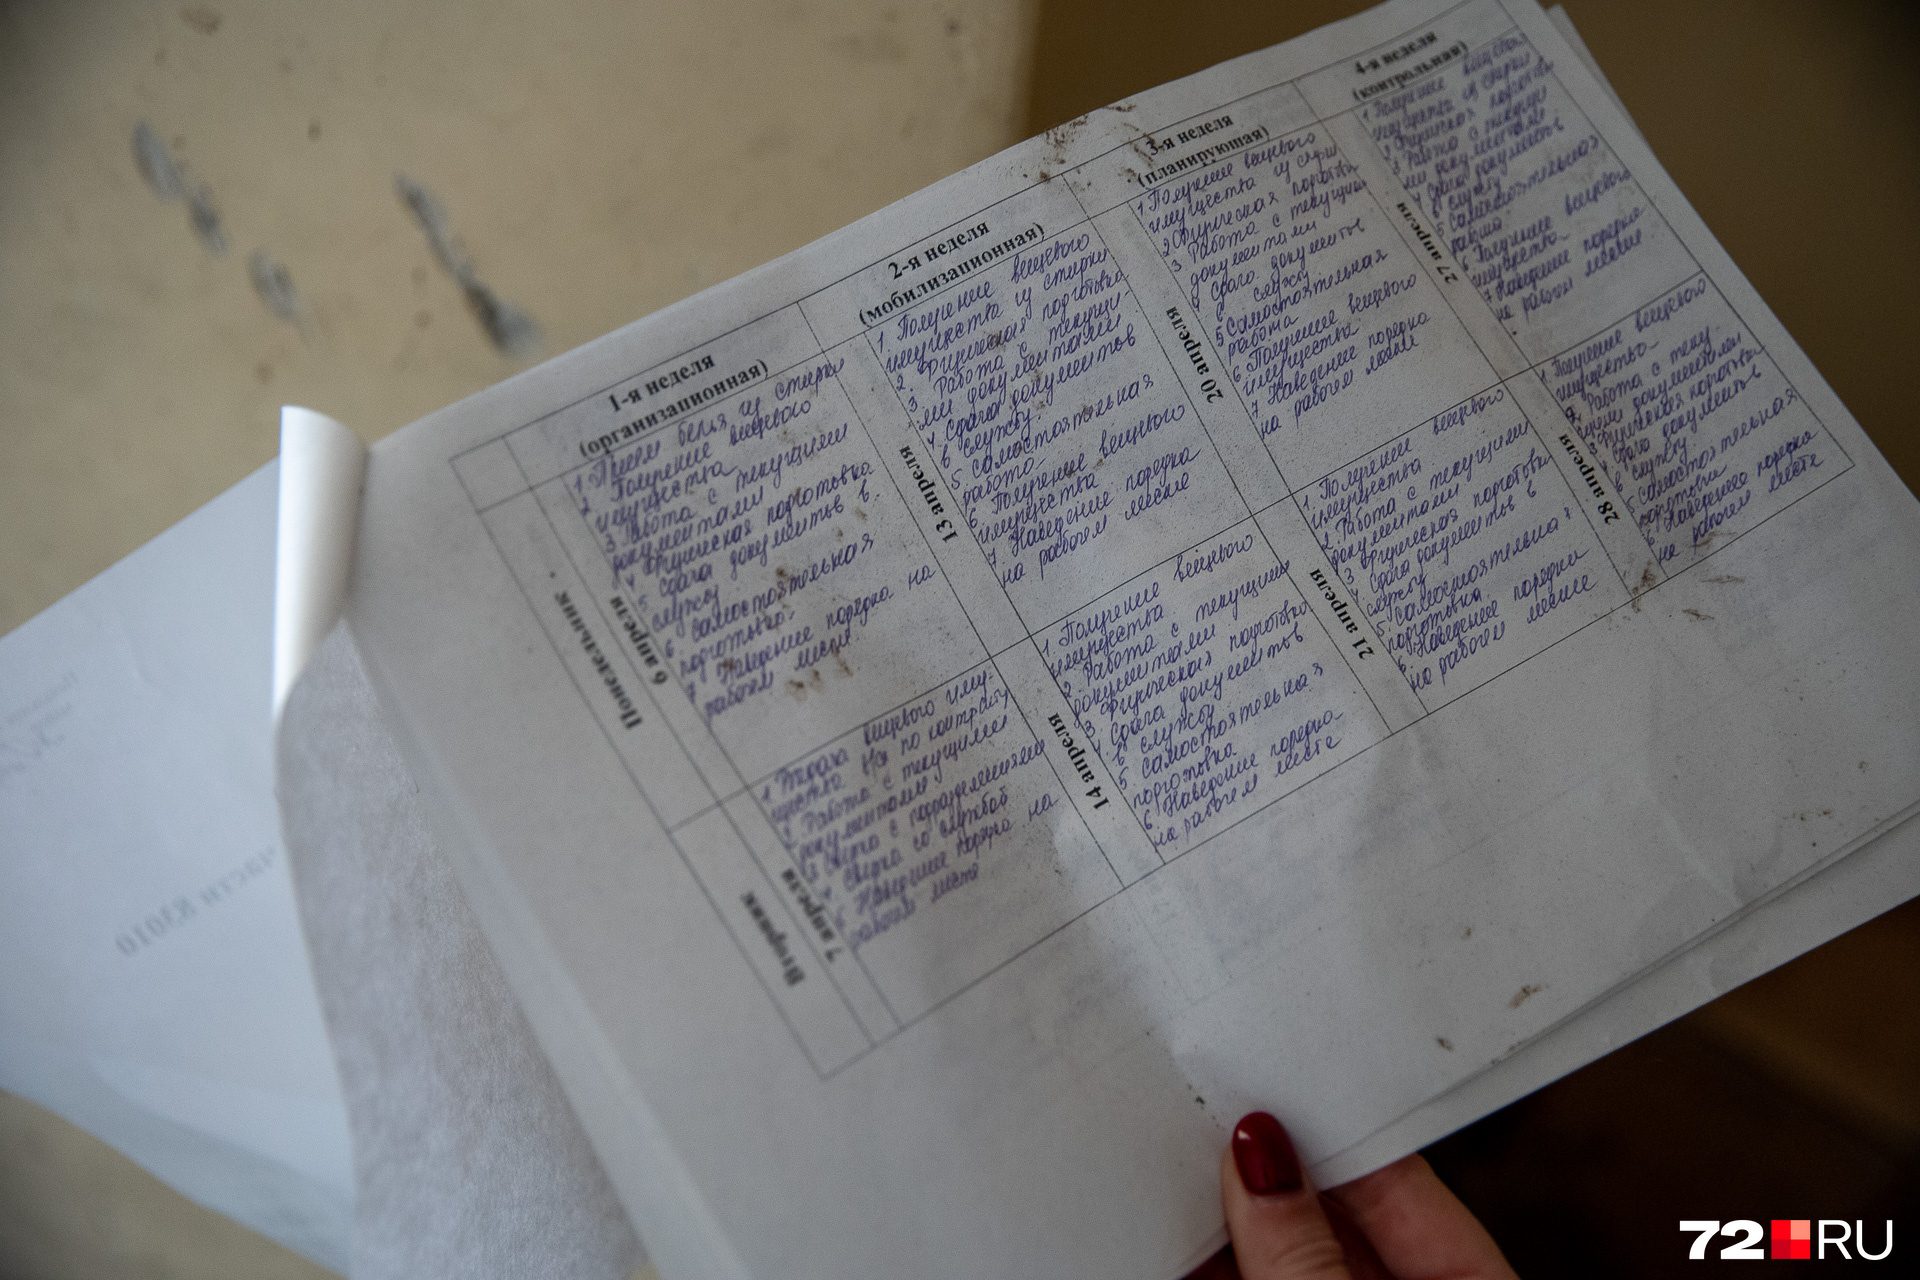 1-я неделя
(организационная)
2-я неделя
(мобилизационная)
3-я неделя
(планирующая)
4-я неделя
(контрольная)
Понедельник
6 апреля
1. Прием белья из стирки
2 Получение вещевого
имущества
3 Работа с текущими
документами
4 Физическая подготовка
5. Сдача документов в
службу
6. Самостоятельная
подготовка.
7 Наведение порядка на
рабочем месте
13 апреля
1. Получение вещевого
имущества из стирки
2. Физическая подготовка
3. Работа с текущи-
ми документами
4 Сдача документов
в службу.
5 Самостоятельная
работа
6 Получение вещевого
имущества
7 Наведение порядка
на рабочем месте
20 апреля
1 Получение вещевого
имущества из стир
2 Физическая подготов
3 Работа с текущими
документами
4 Сдача документов
в службу
5 Самостоятельная
работа
6 Получение вещевого
имущества.
7 Наведение порядка
на рабочем месте
27 апреля
1 Получение вещевого
имущества из стирки
2 Физическая подготов
3 Работа с текущи
ми документами
4 Сдача документов
в службу
5 Самостоятельная
работа
6 Получение вещевого
имущества
7 Наведение порядка
на рабочем месте
Вторник
7 апреля
1 вещевого иму-
щества в/сл по контракту
2 Работа с текущими
документами
3 Сверка с подразделениями
4 Сверка со службой
5 Наведение порядка на
рабочем месте
14 апреля
1 Получение вещевого
имущества
2 Работа с текущими
документами
3 Физическая подготовка
4. Сдача документов
в службу
5 Самостоятельная
подготовка
6 Наведение порядка
на рабочем месте
21 апреля
1 Получение вещевого
имущества
2 Работа с текущими
документами
3 Физическая подготовка
4 Сдача документов в
службу
5 Самостоятельная
подготовка
6 Наведение порядка
на рабочем месте
28 апреля
1. Получение вещевого
имущества
2. Работа с теку-
щими документами
3 Физическая подготовка
4 Сдача документов
в службу
5 Самостоятельная
подготовка
6 Наведение порядка
на рабочем месте
части 83010
72.RU